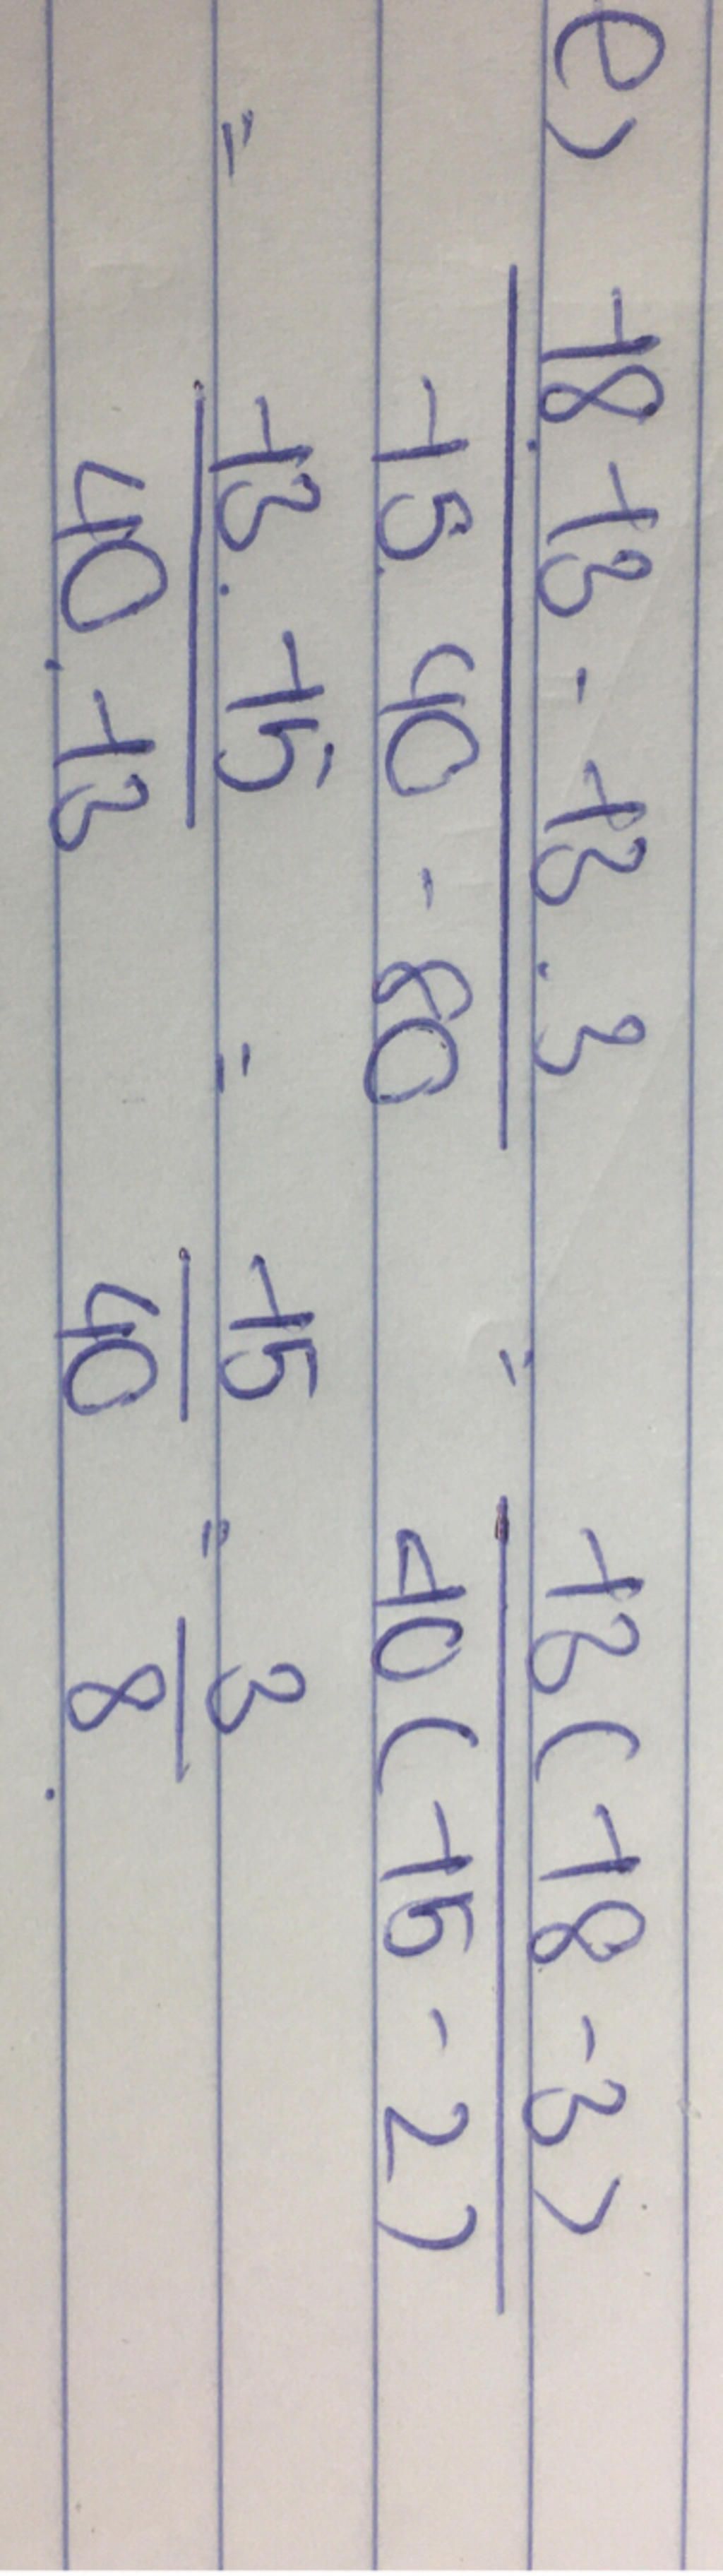 e) 18.13 - 13.3 = 13(18-3)
15.40 - 80 40(15-2)
= 13.15 = 15 = 3
40.13 40 8